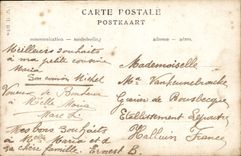 CARTE POSTALE
POSTKAART
communication — mededeeling
adresse — adres
Meilleurs souhaits
à ma petite cousine
Marie
Son cousin Michel
Voeux de Bonheur
à Mlle Maria
Marc
Mes bons souhaits
à Melle Maria et à
sa chère famille. Ernest B.
Mademoiselle
Mia
de Bousbecque
Etablissement
Halluin France